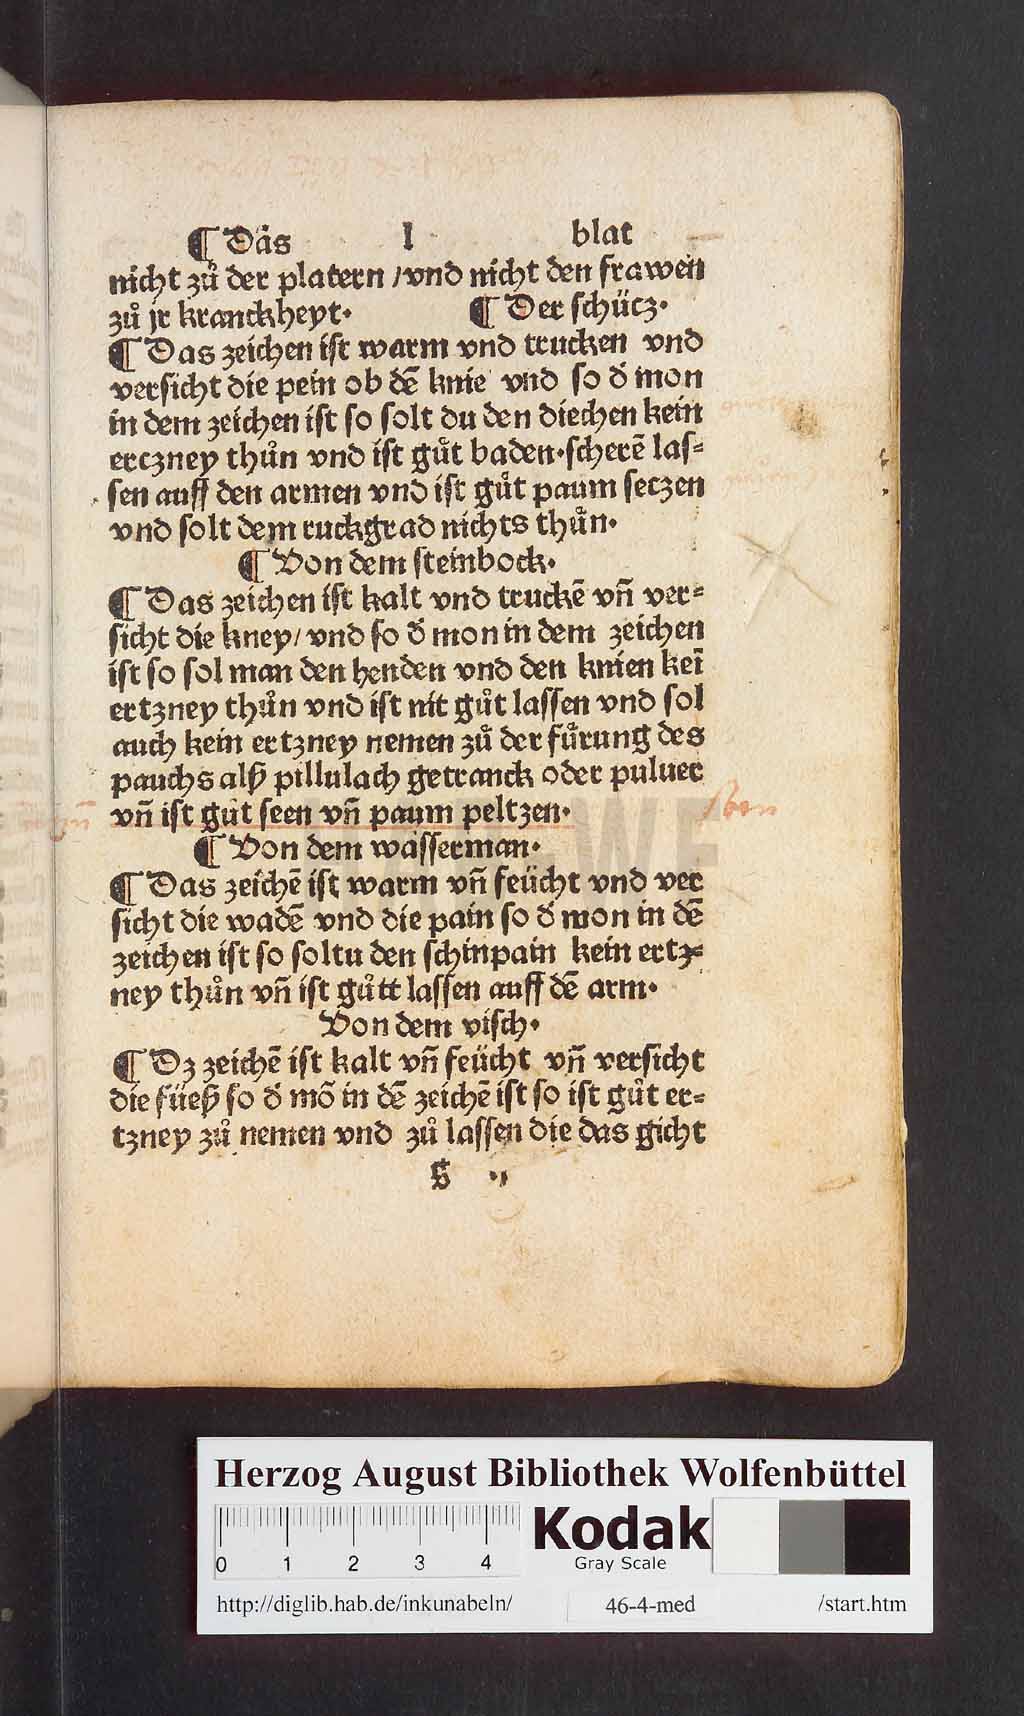 ¶ Das I blat
nicht zuͦ der platern / vnd nicht den frawen
zuͦ jr kranckheyt. ¶ Der schücz.
¶ Das zeichen ist warm vnd trucken vnd
versicht die pein ob dē knie vnd so d̕ mon
in dem zeichen ist so solt du den diechen kein
erczney thuͦn vnd ist guͦt baden.scherē las⸗
sen auff den armen vnd ist guͦt paum seczen
vnd solt dem ruckgrad nichts thuͦn.
¶ Von dem steinbock.
¶ Das zeichen ist kalt vnd truckē vn̄ ver⸗
sicht die kney / vnd so d̕ mon in dem zeichen
ist so sol man den henden vnd den knien keī
ertzney thuͦn vnd ist nit guͦt lassen vnd sol
auch kein ertzney nemen zuͦ der fuͦrung des
pauchs alß pillulach getranck oder puluer
vn̄ ist guͦt seen vn̄ paum peltzen.
¶ Von dem wasserman.
¶ Das zeichē ist warm vn̄ feücht vnd ver
sicht die wadē vnd die pain so d̕ mon in dē
zeichen ist so soltu den schinpain kein ertz⸗
ney thuͦn vn̄ ist guͦtt lassen auff dē arm.
Von dem visch.
¶ Dz zeichē ist kalt vn̄ feücht vn̄ versicht
die füeß so d̕ mō in dē zeichē ist so ist guͦt er⸗
tzney zuͦ nemen vnd zuͦ lassen die das gicht
Herzog August Bibliothek Wolfenbüttel
0 1 2 3 4
Kodak
Gray Scale
http://diglib.hab.de/inkunabeln/ 46-4-med /start.htm